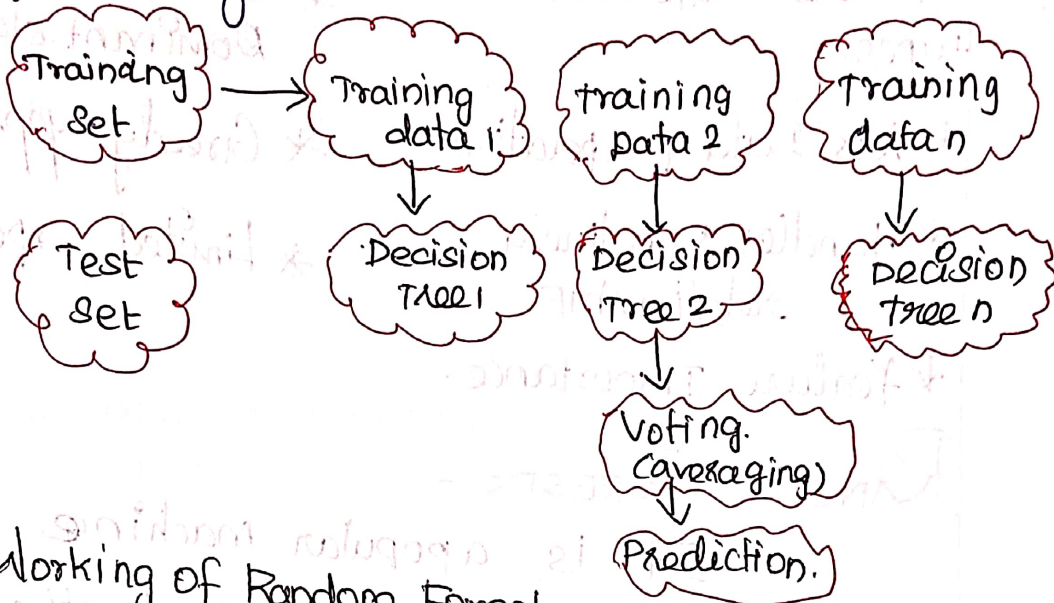 Training
Set
Training
data 1
training
Data 2
Training
data n
Test
Set
Decision
Tree 1
Decision
Tree 2
Decision
Tree n
Voting.
(averaging)
Prediction.
Working of Random Forest